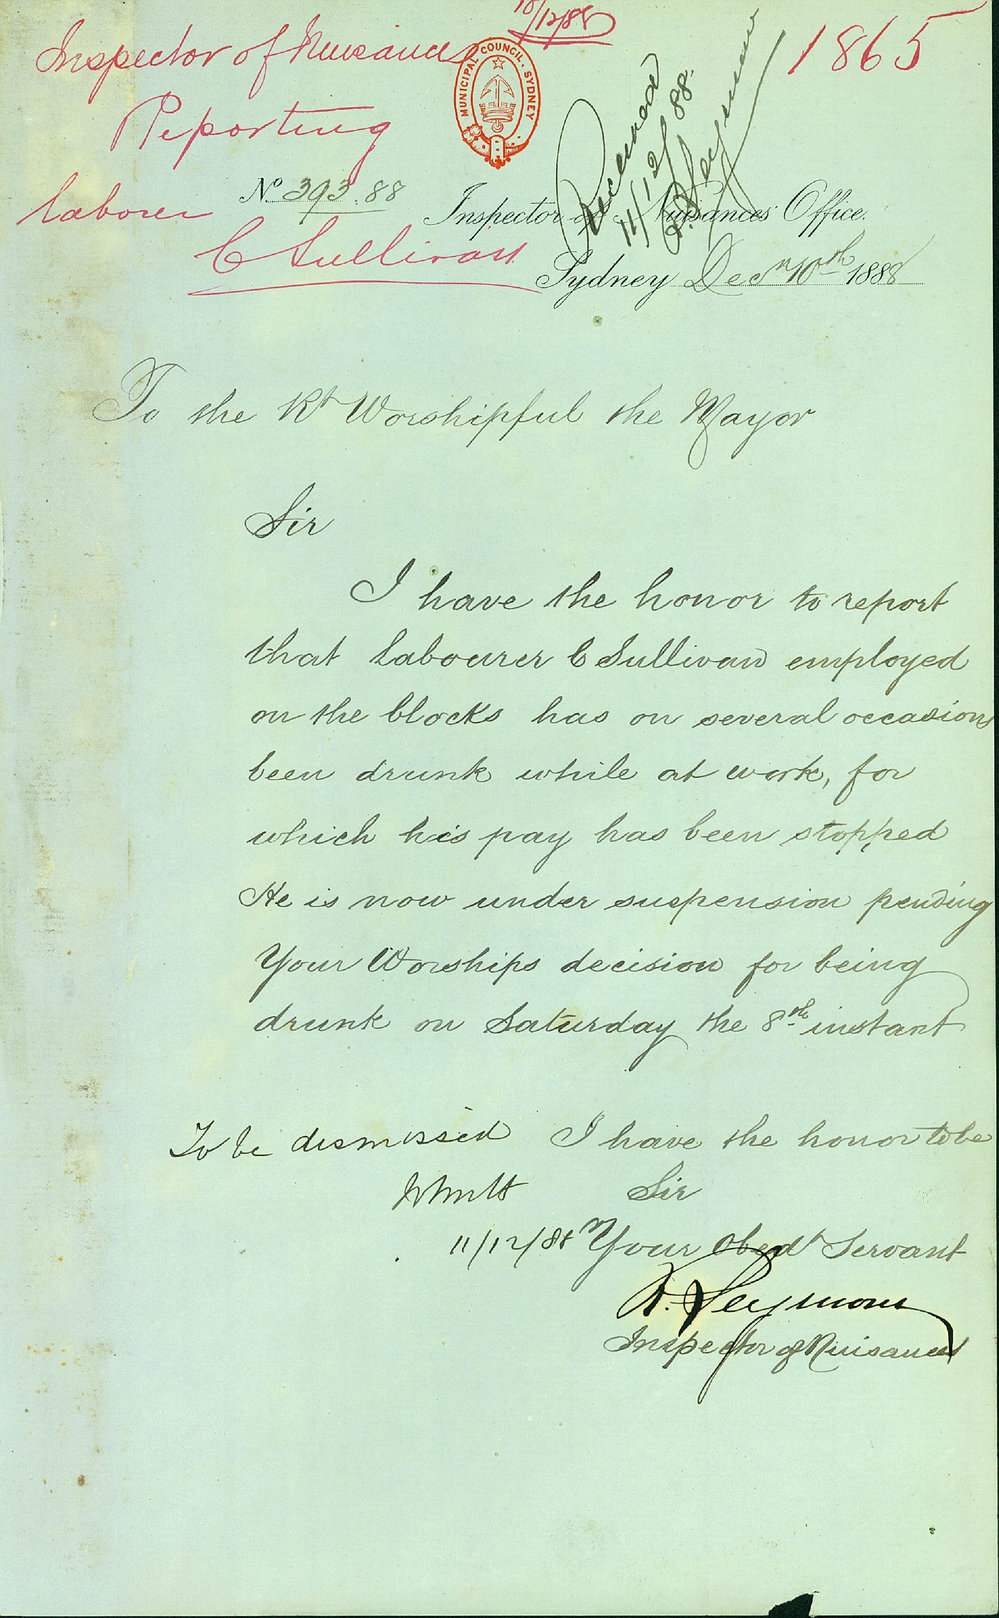 10/12/88
1865
Inspector of Nuisances
Reporting
laborer
C Sullivan
MUNICIPAL COUNCIL. SYDNEY
11/12/88.
Seymour
No. 393.88
Inspector of Nuisances Office.
Sydney Decr 10th 1888
To the Rt Worshipful the Mayor
Sir
I have the honor to report
that Labourer C Sullivan employed
on the blocks has on several occasions
been drunk while at work, for
which his pay has been stopped
He is now under suspension pending
Your Worships decision for being
drunk on Saturday the 8th instant
To be dismissed
11/12/88
I have the honor to be
Sir
Your Obedt Servant
R. Seymour
Inspector of Nuisances